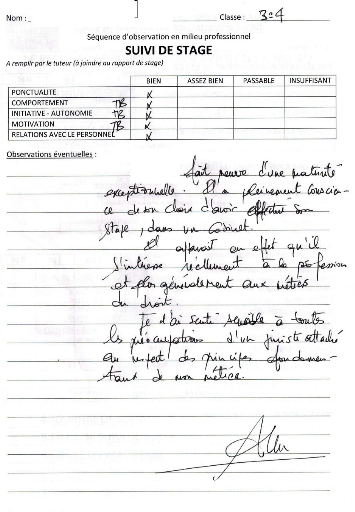 Nom :
Classe : 3e4
Séquence d'observation en milieu professionnel
SUIVI DE STAGE
A remplir par le tuteur (à joindre au rapport de stage)
BIEN ASSEZ BIEN PASSABLE INSUFFISANT
PONCTUALITE X
COMPORTEMENT TB X
INITIATIVE - AUTONOMIE TB X
MOTIVATION TB X
RELATIONS AVEC LE PERSONNEL X
Observations éventuelles :
fait preuve d'une maturité
exceptionnelle. Il a pleinement conscien-
ce de son choix d'avoir effectué son
stage, dans un Cabinet.
Il apparait en effet qu'il
s'intéresse réellement à la profession
et plus généralement aux métiers
du droit.
Je l'ai senti sensible à toutes
les préoccupations d'un juriste attaché
au respect des principes fondamen-
taux de mon métier.